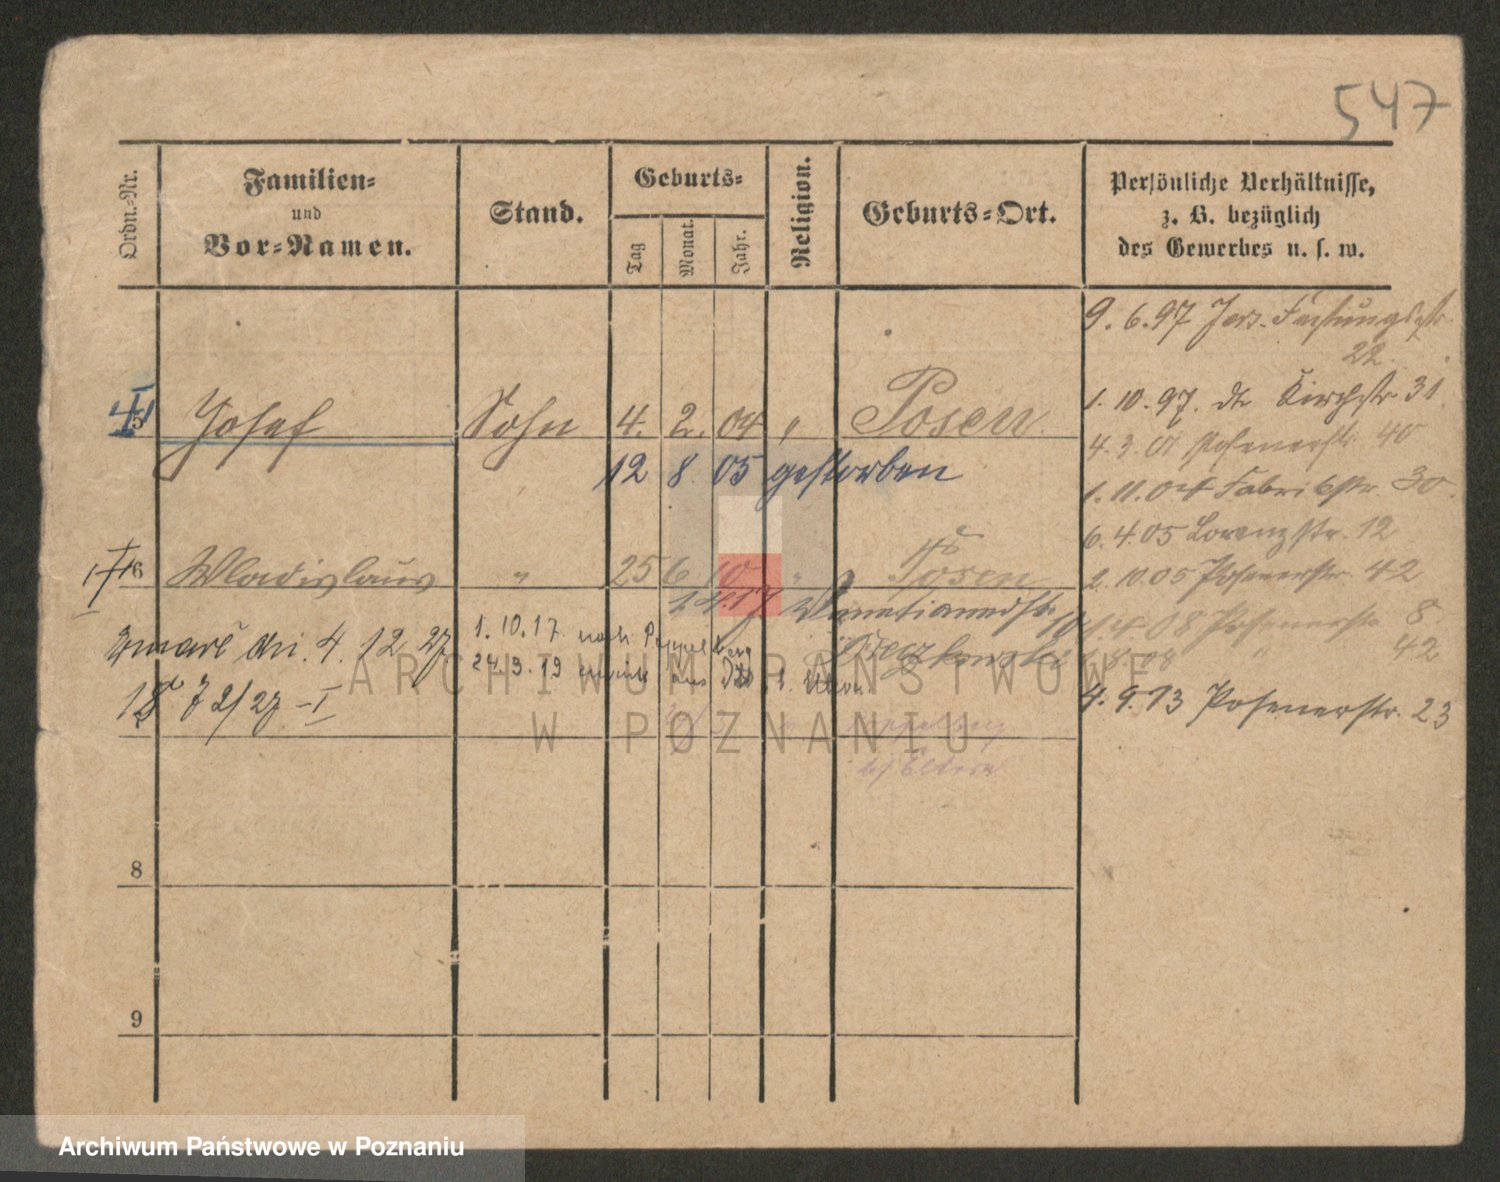 547
Ordn.-Nr.
Familien-
und
Vor-Namen.
Stand.
Geburts-
Tag
Monat.
Jahr.
Religion.
Geburts-Ort.
Persönliche Verhältnisse,
z. B. bezüglich
des Gewerbes u. s. w.
9.6.97 Jers. Festungsstr.
22.
1.10.97. do Kirchstr. 31
5 Josef Sohn 4. 2. 04 " Posen
4.3.01 Posenerstr. 40
12 8. 05 gestorben
1.11.04 Fabrikstr. 30.
6.4.05 Lorenzstr. 12
6 Wladislaus " 25 6 10 " Posen
2.10.05 Posenerstr. 42
1.4.08 Posenerstr. 8
zmarł dn. 4. 12 27
1.10.17 nach Poppelberg
24.3.19 aus
42
72/27 - I
4.9.13 Posenerstr. 23
ARCHIWUM PAŃSTWOWE
W POZNANIU
bei Eltern
8
9
Archiwum Państwowe w Poznaniu